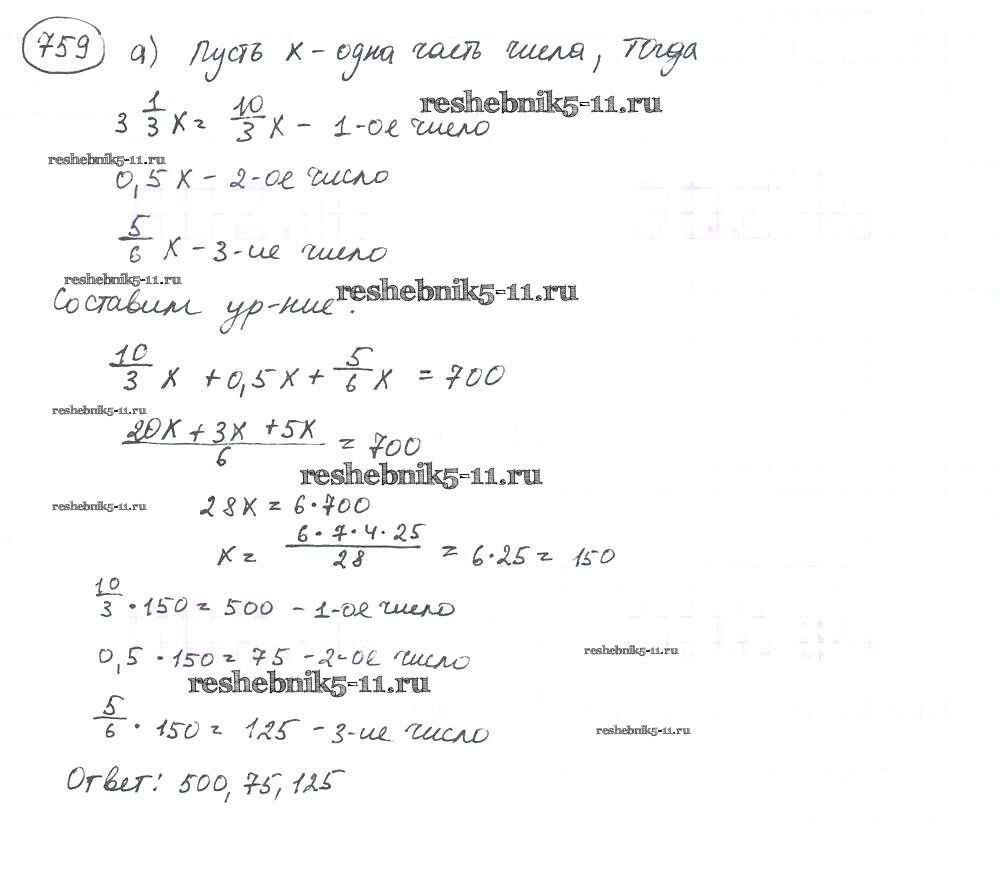 759 а) Пусть х - одна часть числа, тогда
reshebnik5-11.ru
3 1/3 х = 10/3 х - 1-ое число
reshebnik5-11.ru
0,5 х - 2-ое число
5/6 х - 3-ие число
reshebnik5-11.ru
Составим ур-ние:
reshebnik5-11.ru
10/3 х + 0,5х + 5/6 х = 700
reshebnik5-11.ru
20х + 3х + 5х / 6 = 700
reshebnik5-11.ru
reshebnik5-11.ru
28х = 6·700
х = 6·7·4·25 / 28 = 6·25 = 150
10/3 · 150 = 500 - 1-ое число
0,5 · 150 = 75 - 2-ое число
reshebnik5-11.ru
reshebnik5-11.ru
5/6 · 150 = 125 - 3-ие число
reshebnik5-11.ru
Ответ: 500, 75, 125